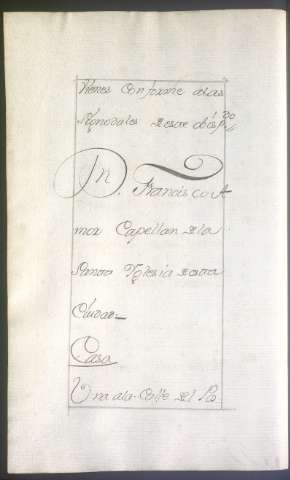 Vienes Conforme alas
Sÿnodales de este obisp.do
Dn. Francisco A
mor Capellan de la
Santa Yglesia de esta
Ciudad
Casa
Una ala Calle del Po